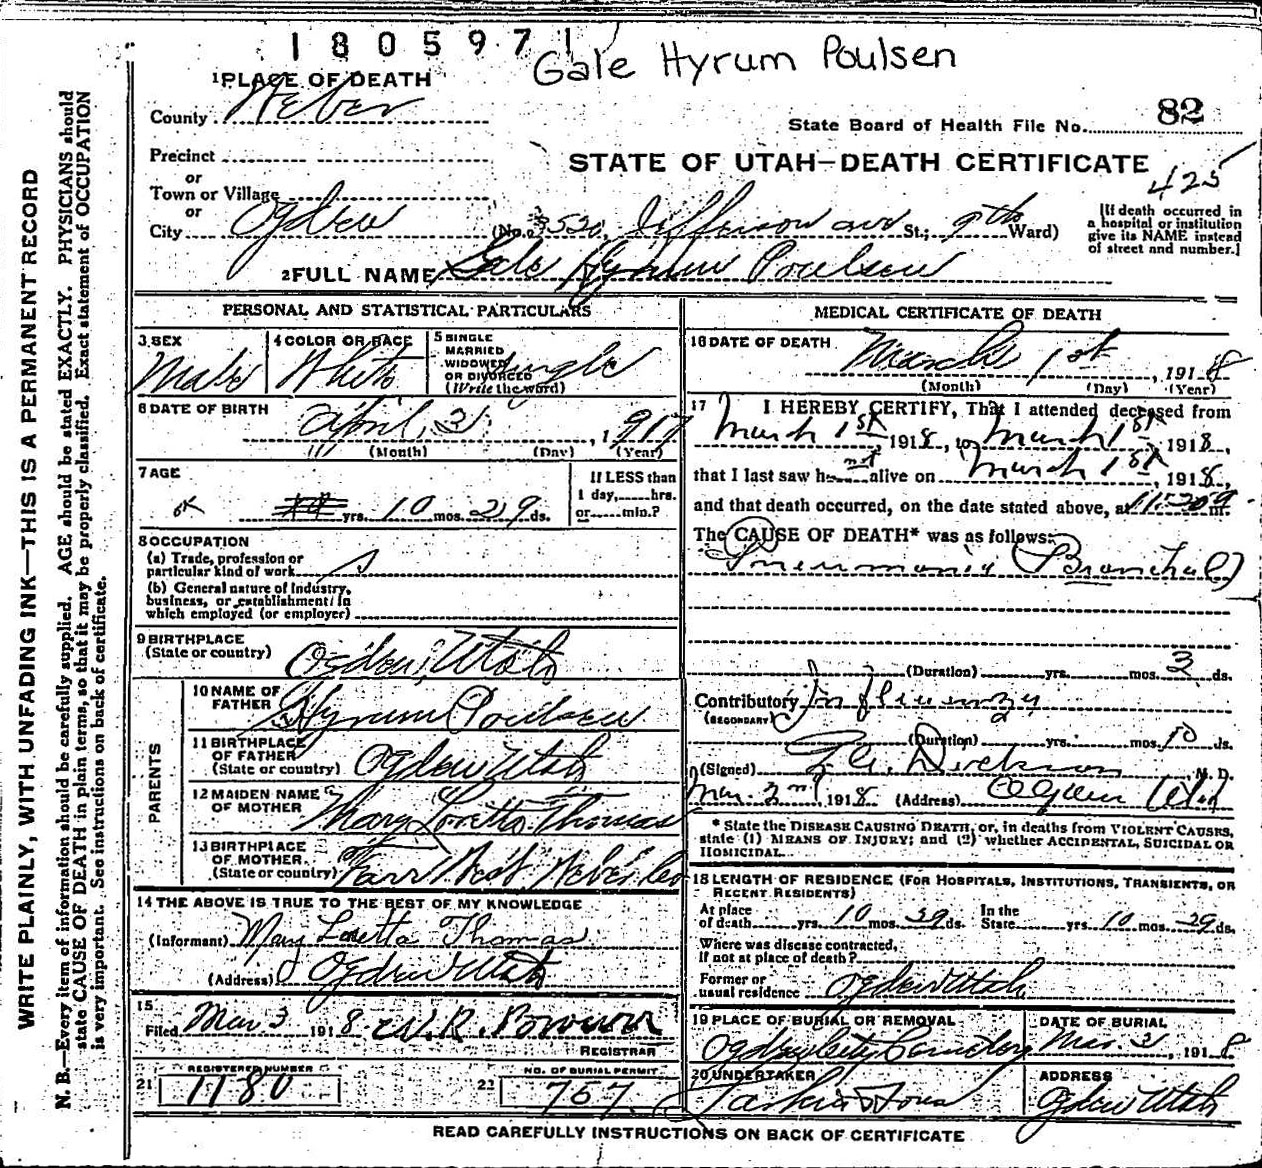 1805971
Gale Hyrum Poulsen
82
1 PLACE OF DEATH
County Weber
State Board of Health File No.
Precinct
or
STATE OF UTAH—DEATH CERTIFICATE
425
Town or Village
or
City Ogden (No. 3520, Jefferson ave St.; 5th Ward)
[If death occurred in
a hospital or institution
give its NAME instead
of street and number.]
2 FULL NAME Gale Hyrum Poulsen
PERSONAL AND STATISTICAL PARTICULARS
3 SEX
Male
4 COLOR OR RACE
White
5 SINGLE
MARRIED
WIDOWED
OR DIVORCED
(Write the word)
Single
6 DATE OF BIRTH
April, 2, 1917
(Month) (Day) (Year)
7 AGE
yrs. 10 mos. 29 ds.
If LESS than
1 day, hrs.
or min.?
8 OCCUPATION
(a) Trade, profession or
particular kind of work
(b) General nature of Industry,
business, or establishment in
which employed (or employer)
9 BIRTHPLACE
(State or country) Ogden, Utah
PARENTS
10 NAME OF
FATHER Hyrum Poulsen
11 BIRTHPLACE
OF FATHER
(State or country) Ogden Utah
12 MAIDEN NAME
OF MOTHER Mary Loretta Thomas
13 BIRTHPLACE
OF MOTHER
(State or country) Farr West, Weber Co
14 THE ABOVE IS TRUE TO THE BEST OF MY KNOWLEDGE
(Informant) Mary Loretta Thomas
(Address) Ogden Utah
15
Filed Mar 3 1918 W. R. Brown
REGISTRAR
21 REGISTERED NUMBER
1180
22 NO. OF BURIAL PERMIT
757
MEDICAL CERTIFICATE OF DEATH
16 DATE OF DEATH March 1st, 1918
(Month) (Day) (Year)
17 I HEREBY CERTIFY, That I attended deceased from
March 1st, 1918, to March 1st, 1918,
that I last saw h not alive on March 1st, 1918,
and that death occurred, on the date stated above, at m.
The CAUSE OF DEATH* was as follows:
Pneumonia (Bronchial)
(Duration) yrs. mos. 3 ds.
Contributory Influenza
(SECONDARY)
(Duration) yrs. mos. 10 ds.
(Signed) Dickson, M. D.
Mar. 2nd, 1918 (Address) Ogden Utah
* State the DISEASE CAUSING DEATH, or, in deaths from VIOLENT CAUSES,
state (1) MEANS OF INJURY; and (2) whether ACCIDENTAL, SUICIDAL OR
HOMICIDAL.
18 LENGTH OF RESIDENCE (FOR HOSPITALS, INSTITUTIONS, TRANSIENTS, OR
RECENT RESIDENTS)
At place
of death yrs. 10 mos. 29 ds. In the
State yrs. 10 mos. 29 ds.
Where was disease contracted,
if not at place of death?
Former or
usual residence Ogden Utah
19 PLACE OF BURIAL OR REMOVAL
Ogden City Cemetery
DATE OF BURIAL
Mar. 3, 1918
20 UNDERTAKER
Larkin & Sons
ADDRESS
Ogden Utah
READ CAREFULLY INSTRUCTIONS ON BACK OF CERTIFICATE
WRITE PLAINLY, WITH UNFADING INK—THIS IS A PERMANENT RECORD
N. B.—Every item of information should be carefully supplied. AGE should be stated EXACTLY. PHYSICIANS should
state CAUSE OF DEATH in plain terms, so that it may be properly classified. Exact statement of OCCUPATION
is very important. See instructions on back of certificate.